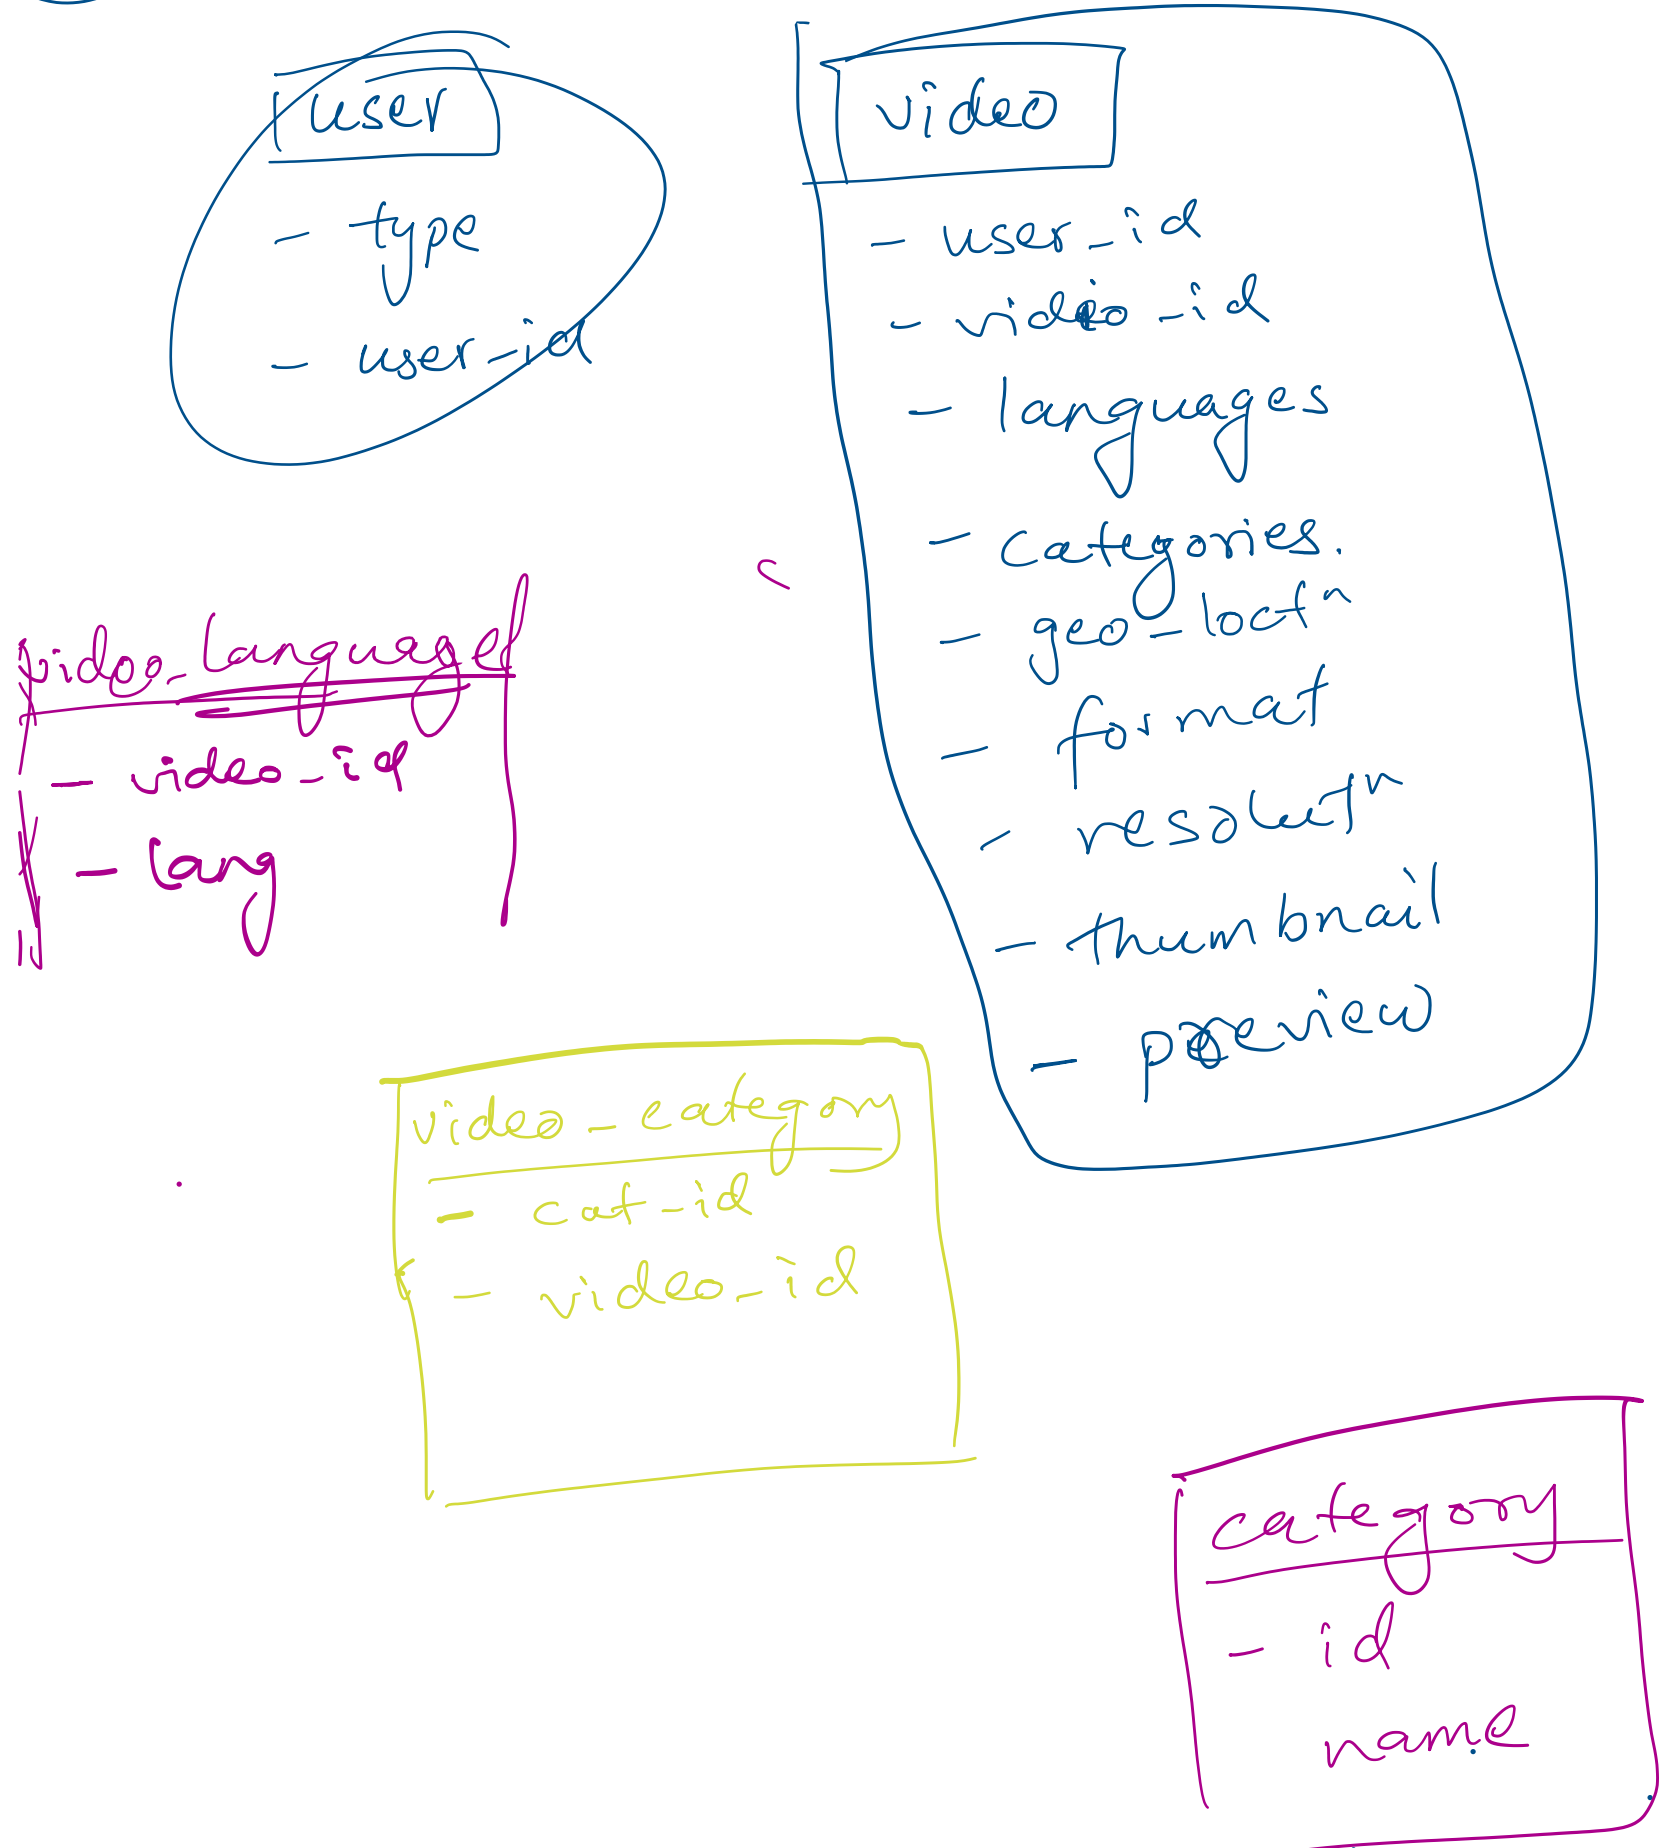 user
- type
- user-id
video
- user_id
- video-id
- languages
- categories.
- geo-loctⁿ
- format
- resolutⁿ
- thumbnail
- preview
video_language
- video_id
- lang
video_category
- cat-id
- video_id
category
- id
name